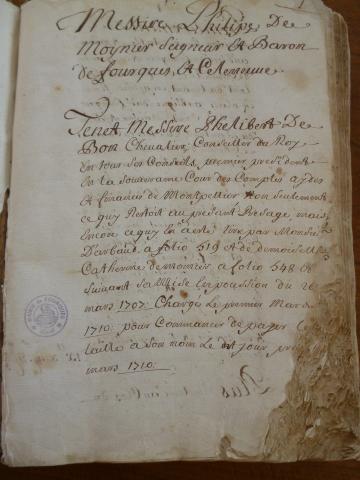 Messire Philipe De
Moynier Seigneur Et Baron
de fourques, Et
Tenet, Messire Philibert De
Bon Chevalier, Conseiller du Roy
En tous Ses Conseils, premier president
En la souveraine Cour des Comptes aydes
Et finances de Montpellier Non seulement
ce quy Restoit au presant Presage, mais
Encore ce quy En a este tire par Monsieur
D'arbaud a folio 519 Et de demoiselle
Catherine de moinier a folio 548 Et
suivant sa Mise En possion du
mars 1707. Chargé Le premier Mars
1710. pour Commancer de payer
taille a son nom Le dit Jour
mars 1710.
Plus